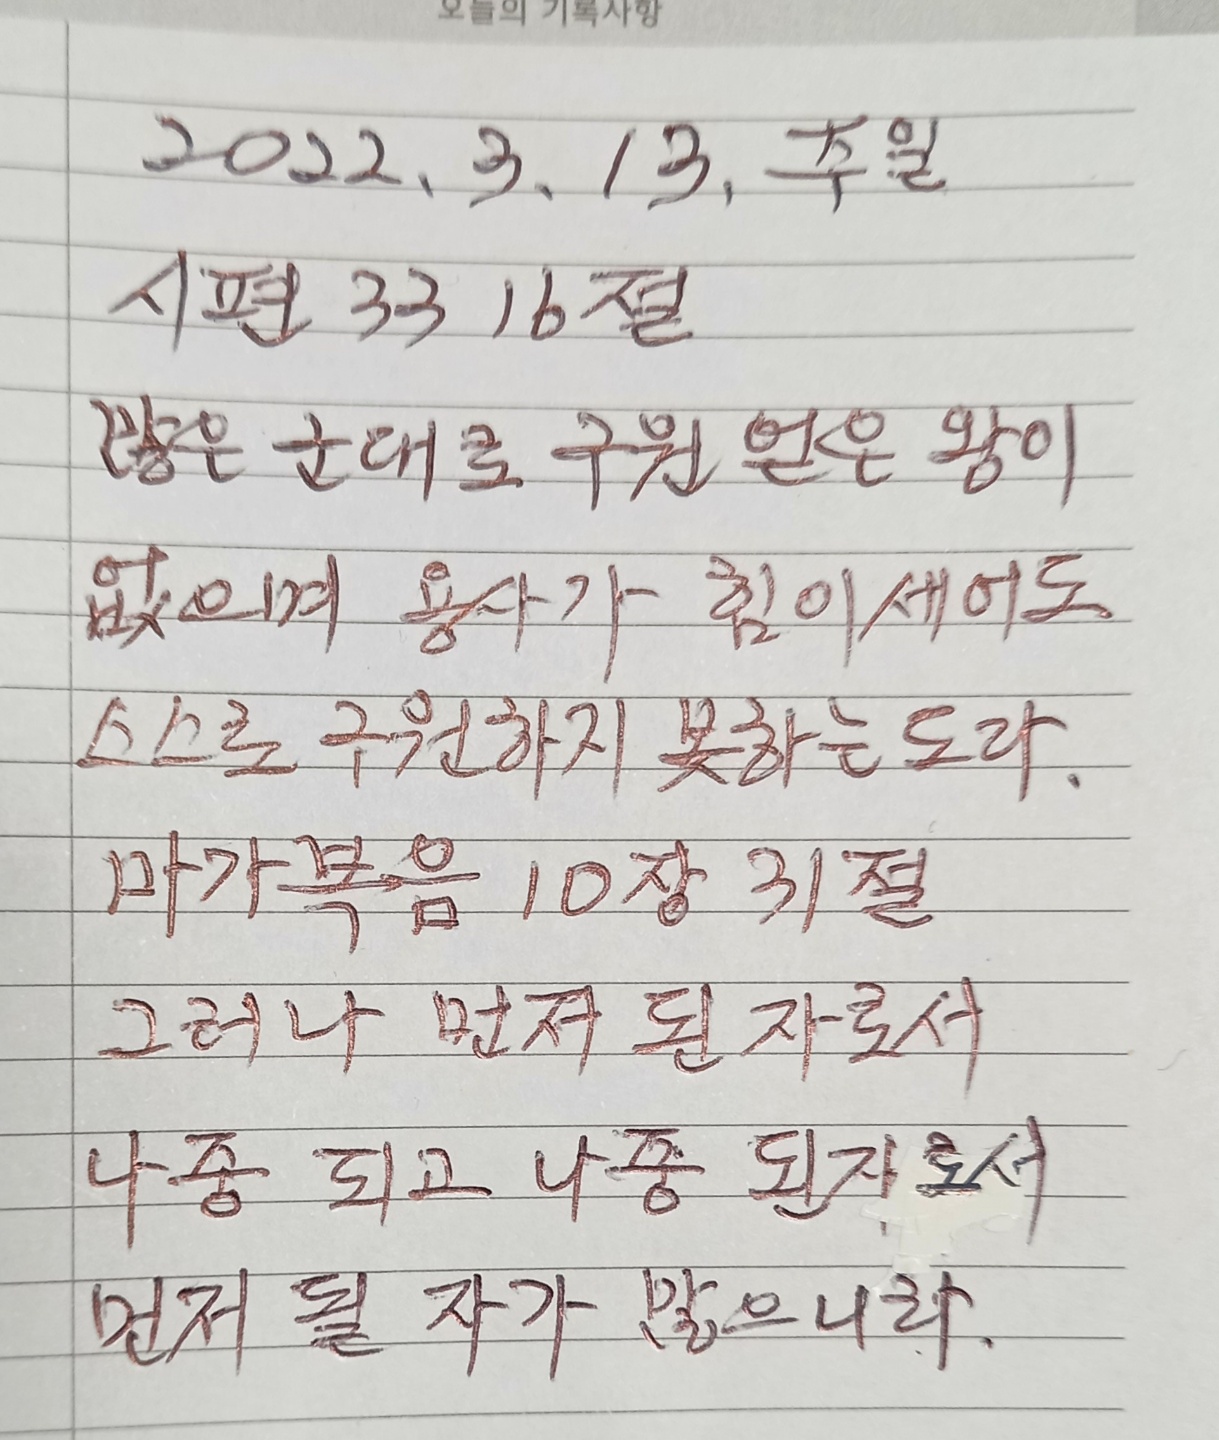 오늘의 기록사항
2022. 3. 13. 주일
시편 33 16절
많은 군대로 구원 얻은 왕이
없으며 용사가 힘이 세어도
스스로 구원하지 못하는도다.
마가복음 10장 31절
그러나 먼저 된 자로서
나중 되고 나중 된자로서
먼저 될 자가 많으니라.